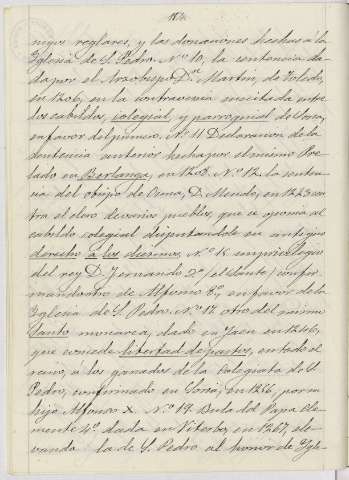 184
nigos reglares, y las donaciones hechas á la
Yglesia de S. Pedro. N.º 10, la sentencia da-
da por el Arzobispo Dⁿ Martin, de Toledo,
en 1206, en la controversia suscitada entre
los cabildos, colegial, y parroquial de Soria,
en favor del primero. N.º 11 Declaracion de la
sentencia anterior hecha por el mismo Pre-
lado en Berlanga, en 1208. N.º 12 la senten-
cia del obispo de Osma, D. Mendo, en 1223 con-
tra el clero de varios pueblos, que se oponia al
cabildo colegial disputandole su antiguo
derecho á los diezmos. N.º 15 un privilegio
del rey D. Fernando 2º (el Santo) confir-
mando otro de Alfonso 8º, en favor de la
Yglesia de S. Pedro. N.º 17 otro del mismo
Santo monarca, dado en Jaen en 1246,
que concede libertad de pastos, en todo el
reino, á los ganados de la Colegiata de S.
Pedro, confirmado en Soria, en 1256, por su
hijo Alfonso X. N.º 19 Bula del Papa Cle-
mente 4º dada en Viterbo, en 1267, ele-
vando la de S. Pedro al honor de Ygle-